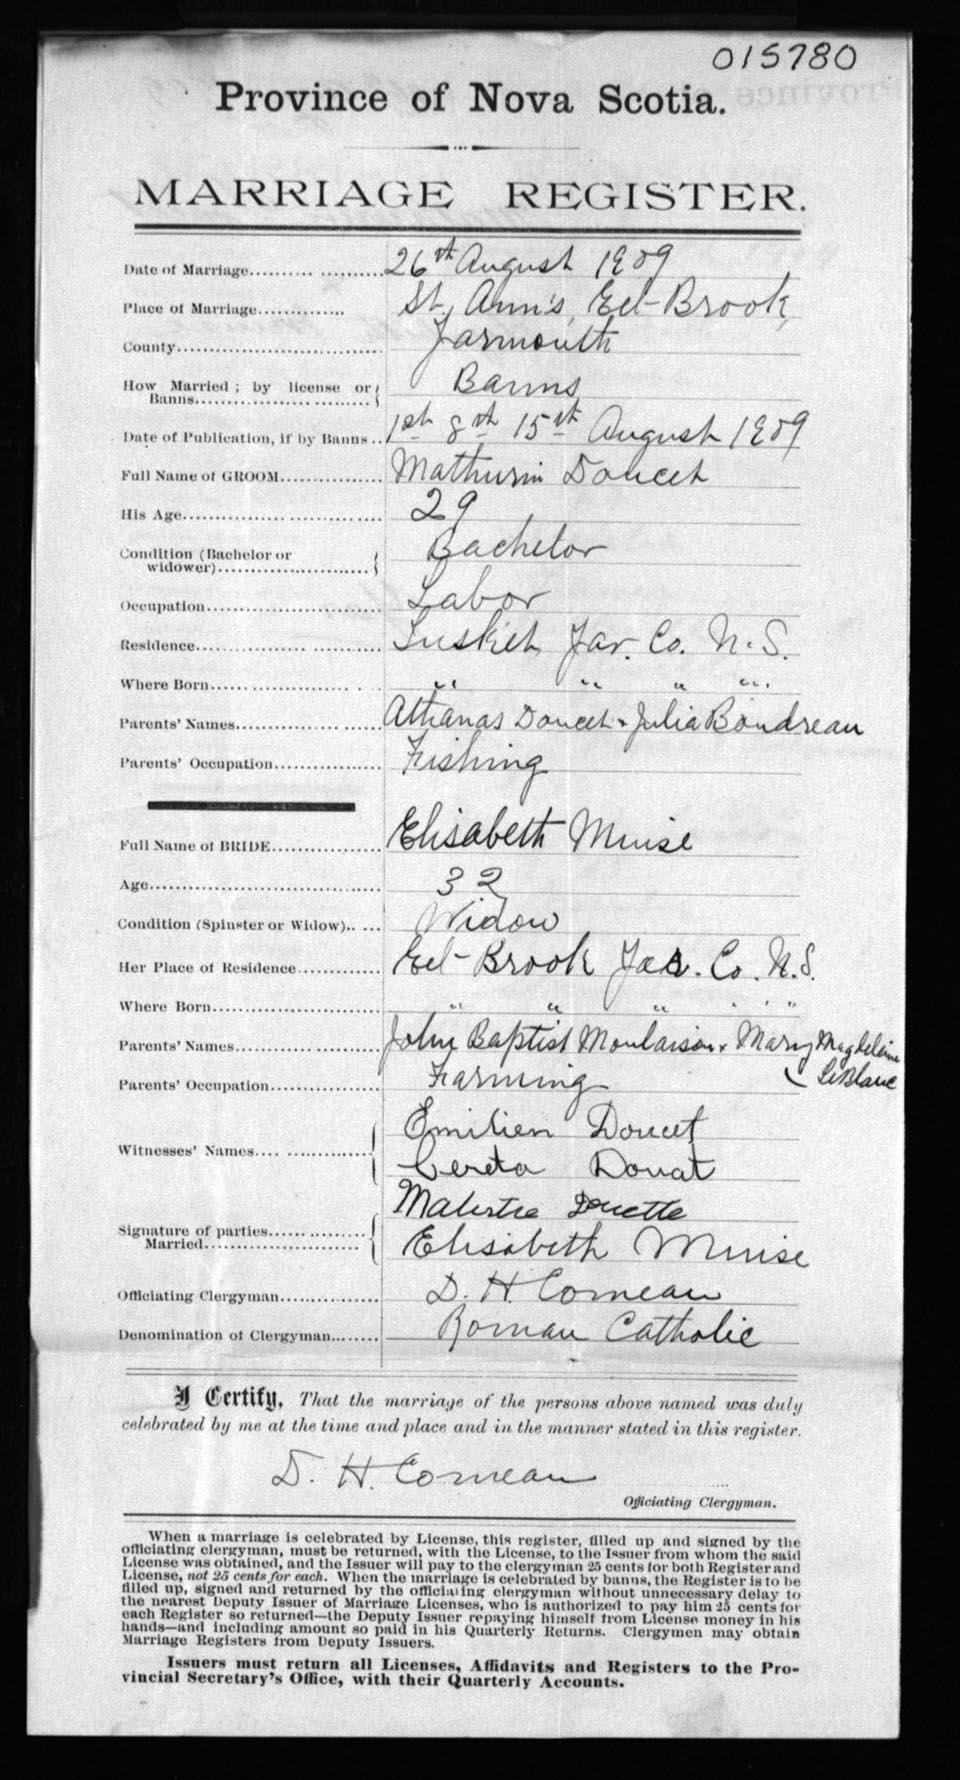 015780
Province of Nova Scotia.
MARRIAGE REGISTER.
Date of Marriage.................... 26th August 1909
Place of Marriage.............. St. Ann's, Eel-Brook,
County................................ Yarmouth
How Married; by license or Banns........................ Banns
Date of Publication, if by Banns.. 1st 8th 15th August 1909
Full Name of GROOM................ Mathurin Doucet
His Age................................ 29
Condition (Bachelor or widower)........................ Bachelor
Occupation........................... Labor
Residence............................. Tusket, Yar. Co. N.S.
Where Born........................... " " " "
Parents' Names...................... Athanas Doucet & Julia Boudreau
Parents' Occupation................. Fishing
Full Name of BRIDE................. Elisabeth Muise
Age..................................... 32
Condition (Spinster or Widow)..... Widow
Her Place of Residence............. Eel-Brook Yar. Co. N.S.
Where Born........................... " " " " "
Parents' Names...................... John Baptist Moulaison & Mary Magdeleine
LeBlanc
Parents' Occupation................. Farming
Witnesses' Names.................... Emilien Doucet
Doucet
Signature of parties Married........................ Doucette
Elisabeth Muise
Officiating Clergyman............... D. H. Comeau
Denomination of Clergyman........ Roman Catholic
I Certify, That the marriage of the persons above named was duly
celebrated by me at the time and place and in the manner stated in this register.
D. H. Comeau
Officiating Clergyman.
When a marriage is celebrated by License, this register, filled up and signed by the
officiating clergyman, must be returned, with the License, to the Issuer from whom the said
License was obtained, and the Issuer will pay to the clergyman 25 cents for both Register and
License, not 25 cents for each. When the marriage is celebrated by banns, the Register is to be
filled up, signed and returned by the officiating clergyman without unnecessary delay to
the nearest Deputy Issuer of Marriage Licenses, who is authorized to pay him 25 cents for
each Register so returned—the Deputy Issuer repaying himself from License money in his
hands—and including amount so paid in his Quarterly Returns. Clergymen may obtain
Marriage Registers from Deputy Issuers.
Issuers must return all Licenses, Affidavits and Registers to the Pro-
vincial Secretary's Office, with their Quarterly Accounts.